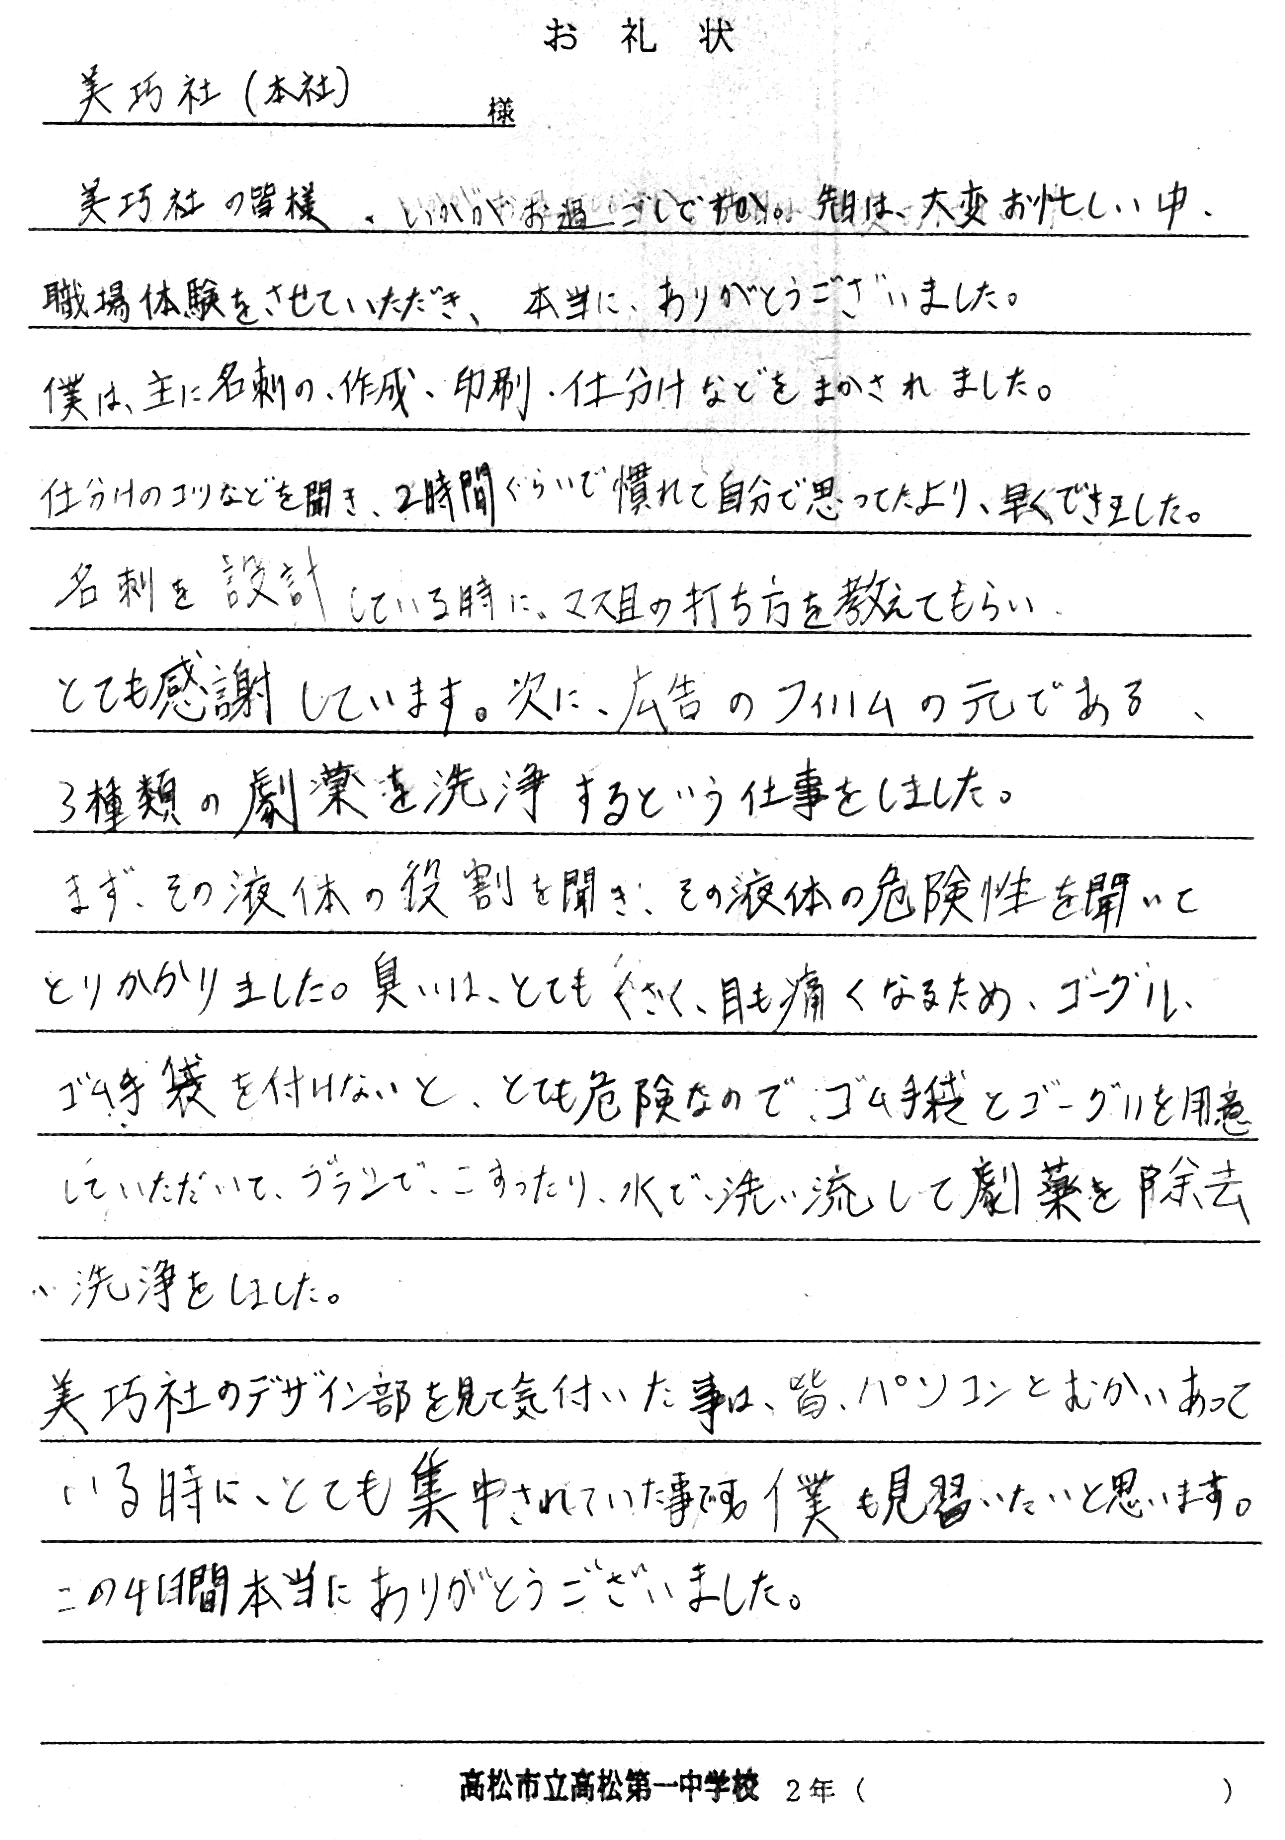 お礼状
美巧社(本社) 様
美巧社の皆様、いかがお過ごしですか。先日は、大変お忙しい中、
職場体験をさせていただき、本当に、ありがとうございました。
僕は、主に名刺の、作成、印刷、仕分けなどをまかされました。
仕分けのコツなどを聞き、2時間ぐらいで慣れて自分で思ってたより、早くできました。
名刺を設計している時に、マス目の打ち方を教えてもらい、
とても感謝しています。次に、広告のフィルムの元である、
3種類の劇薬を洗浄するという仕事をしました。
まず、その液体の役割を聞き、その液体の危険性を聞いて
とりかかりました。臭いは、とてもくさく、目も痛くなるため、ゴーグル、
ゴム手袋を付けないと、とても危険なので、ゴム手袋とゴーグルを用意
していただいて、ブラシで、こすったり、水で、洗い流して劇薬を除去
、洗浄をしました。
美巧社のデザイン部を見て気付いた事は、皆、パソコンとむかいあって
いる時に、とても集中されていた事です。僕も見習いたいと思います。
この4日間本当にありがとうございました。
高松市立高松第一中学校 2年( )